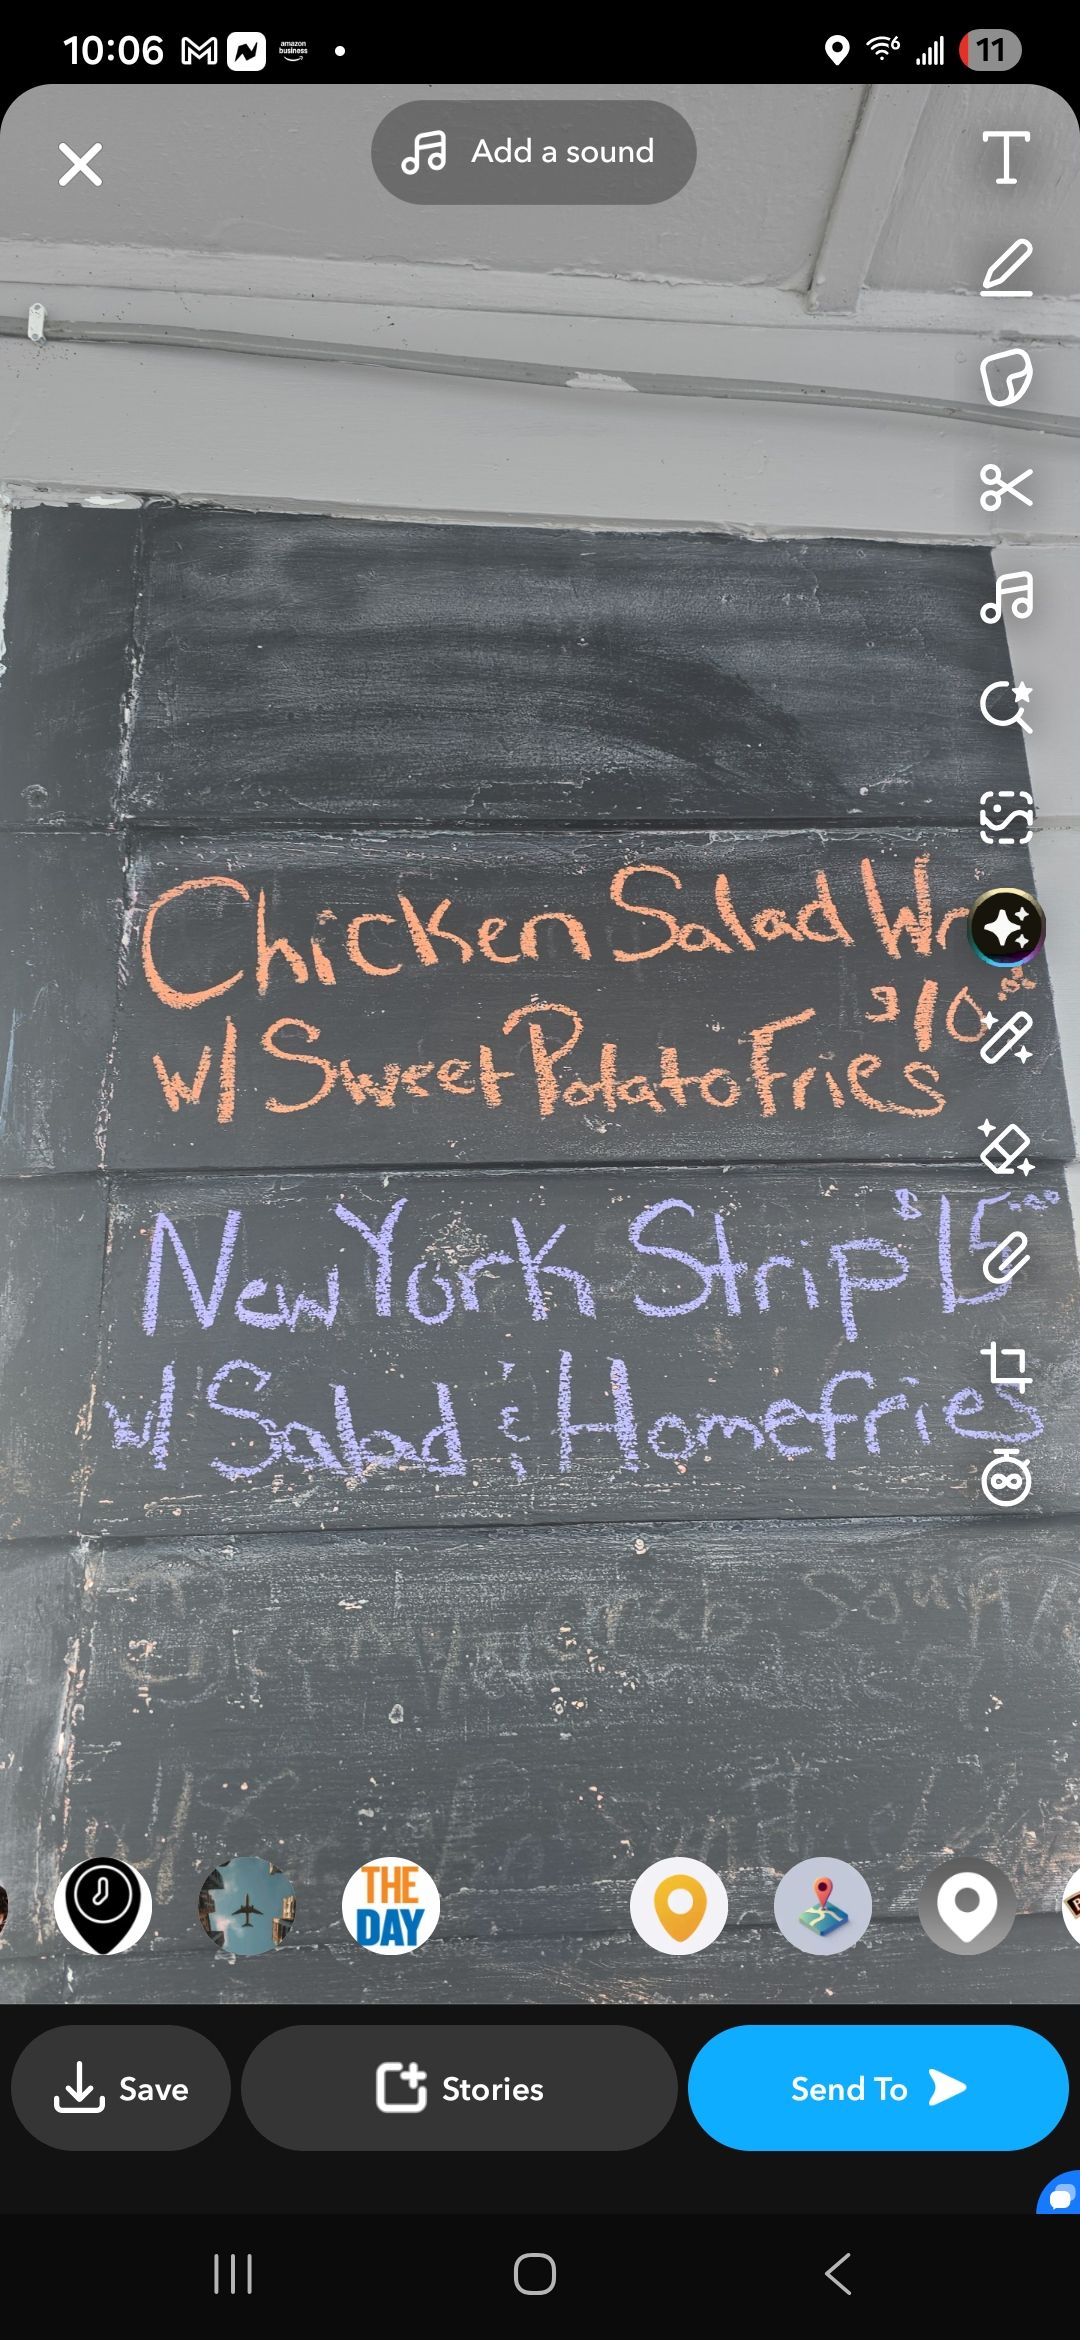 10:06
amazon business
6
11
Add a sound
Chicken Salad Wr
$10.00
w/ Sweet Potato Fries
$15.00
New York Strip
w/ Salad & Homefries
Soup
THE DAY
Save
Stories
Send To